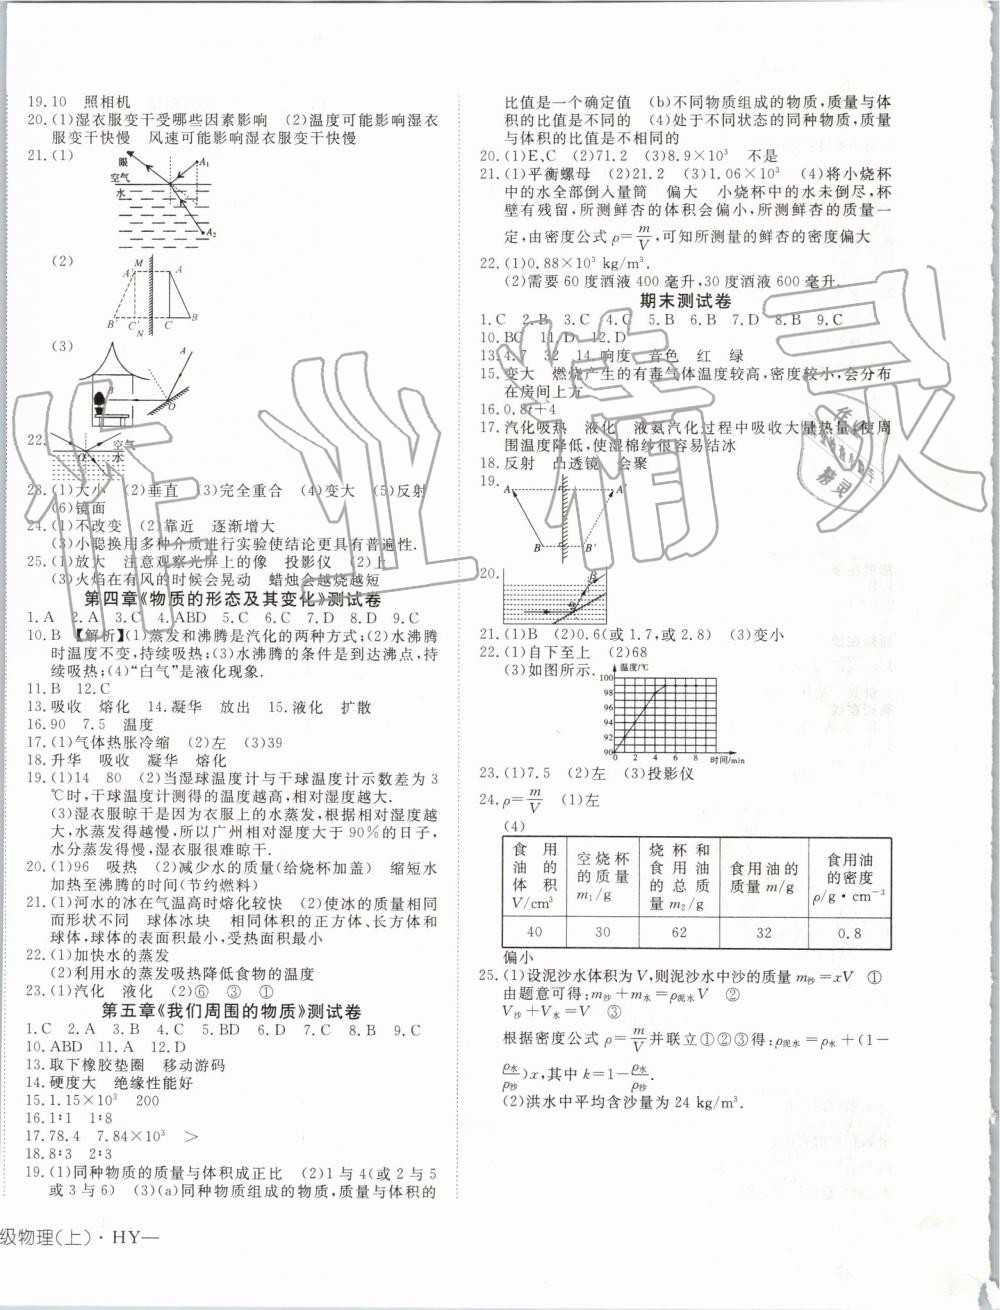 19.10　照相机
20.(1)湿衣服变干受哪些因素影响　(2)温度可能影响湿衣
服变干快慢　风速可能影响湿衣服变干快慢
21.(1)
眼
A₁
空气
水
A₂
(2)
M
A′
A
B′ C′ C B
N
(3)
A
B
O
22.
空气
水
O
23.(1)大小　(2)垂直　(3)完全重合　(4)变大　(5)反射
(6)镜面
24.(1)不改变　(2)靠近　逐渐增大
(3)小聪换用多种介质进行实验使结论更具有普遍性.
25.(1)放大　注意观察光屏上的像　投影仪　(2)上
(3)火焰在有风的时候会晃动　蜡烛会越烧越短
第四章《物质的形态及其变化》测试卷
1.A　2.A　3.C　4.ABD　5.C　6.C　7.D　8.D　9.C
10.B　【解析】(1)蒸发和沸腾是汽化的两种方式;(2)水沸腾
时温度不变,持续吸热;(3)水沸腾的条件是到达沸点,持
续吸热;(4)“白气”是液化现象.
11.B　12.C
13.吸收　熔化　14.凝华　放出　15.液化　扩散
16.90　7.5　温度
17.(1)气体热胀冷缩　(2)左　(3)39
18.升华　吸收　凝华　熔化
19.(1)14　80　(2)当湿球温度计与干球温度计示数差为3
℃时,干球温度计测得的温度越高,相对湿度越大.
(3)湿衣服晾干是因为衣服上的水蒸发,根据相对湿度越
大,水蒸发得越慢,所以广州相对湿度大于90%的日子,
水分蒸发得慢,湿衣服很难晾干.
20.(1)96　吸热　(2)减少水的质量(给烧杯加盖)　缩短水
加热至沸腾的时间(节约燃料)
21.(1)河水的冰在气温高时熔化较快　(2)使冰的质量相同
而形状不同　球体冰块　相同体积的正方体、长方体和
球体,球体的表面积最小,受热面积最小
22.(1)加快水的蒸发
(2)利用水的蒸发吸热降低食物的温度
23.(1)汽化　液化　(2)⑥　③　①
第五章《我们周围的物质》测试卷
1.C　2.A　3.B　4.C　5.BD　6.D　7.A　8.B　9.C
10.ABD　11.A　12.D
13.取下橡胶垫圈　移动游码
14.硬度大　绝缘性能好
15.1.15×10³　200
16.1∶1　1∶8
17.78.4　7.84×10³　＞
18.8∶3　2∶3
19.(1)同种物质的质量与体积成正比　(2)1与4(或2与5
或3与6)　(3)(a)同种物质组成的物质,质量与体积的
级物理(上)·HY—
比值是一个确定值　(b)不同物质组成的物质,质量与体
积的比值是不同的　(4)处于不同状态的同种物质,质量
与体积的比值是不相同的
20.(1)E、C　(2)71.2　(3)8.9×10³　不是
21.(1)平衡螺母　(2)21.2　(3)1.06×10³　(4)将小烧杯
中的水全部倒入量筒　偏大　小烧杯中的水未倒尽,杯
壁有残留,所测鲜杏的体积会偏小,所测鲜杏的质量一
定,由密度公式ρ=m/V,可知所测量的鲜杏的密度偏大
22.(1)0.88×10³ kg/m³.
(2)需要60度酒液400毫升,30度酒液600毫升.
期末测试卷
1.C　2.B　3.C　4.C　5.B　6.B　7.D　8.B　9.C
10.BC　11.D　12.D
13.4.7　32　14.响度　音色　红　绿
15.变大　燃烧产生的有毒气体温度较高,密度较小,会分布
在房间上方
16.0.8t+4
17.汽化吸热　液化　液氨汽化过程中吸收大量热量,使周
围温度降低,使湿棉纱很容易结冰
18.反射　凸透镜　会聚
19.
A
A′
B
B′
20.
21.(1)B　(2)0.6(或1.7,或2.8)　(3)变小
22.(1)自下至上　(2)68
(3)如图所示.
温度/℃
100
98
96
94
92
90
0 2 4 6 8 时间/min
23.(1)7.5　(2)左　(3)投影仪
24.ρ=m/V　(1)左
(4)
食用油的体积V/cm³　空烧杯的质量m₁/g　烧杯和食用油的总质量m₂/g　食用油的质量m/g　食用油的密度ρ/g·cm⁻³
40　30　62　32　0.8
偏小
25.(1)设泥沙水体积为V,则泥沙水中沙的质量m沙=xV　①
由题意可得:m沙+m水=ρ泥水V　②
V沙+V水=V　③
根据密度公式ρ=m/V并联立①②③得:ρ泥水=ρ水+(1-
ρ水/ρ沙)x,其中k=1-ρ水/ρ沙.
(2)洪水中平均含沙量为24 kg/m³.
作业精灵